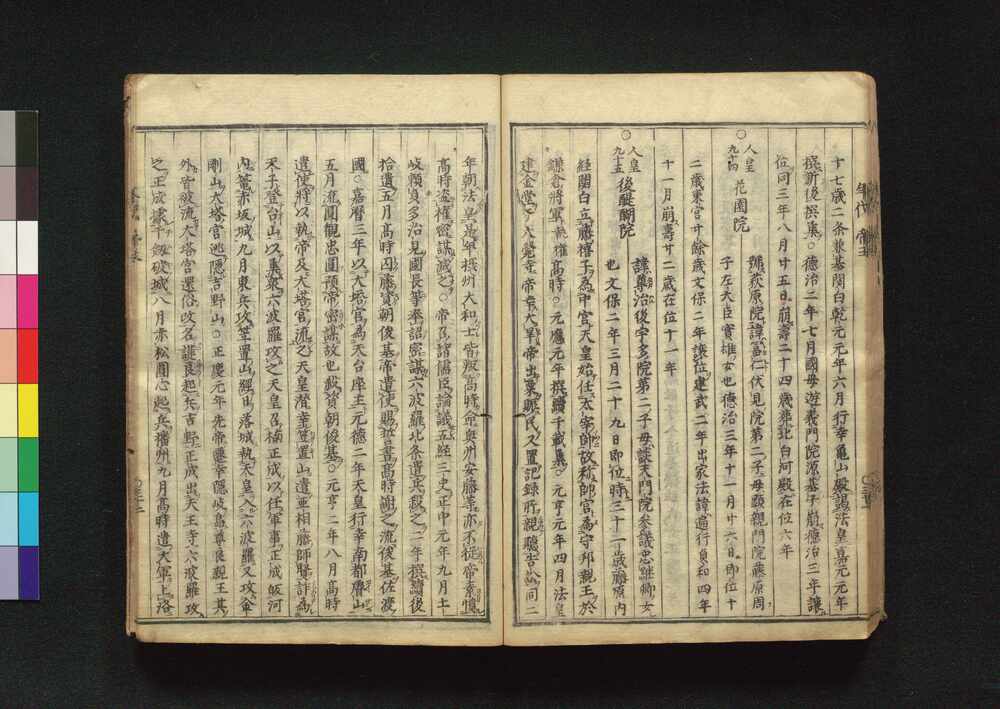 年代 帝王
十七歳二条兼基関白乾元元年六月行幸亀山殿謁法皇嘉元元年
撰新後撰集○徳治二年七月國母遊義門院源基子崩德治三年讓
位同三年八月廿五日崩壽二十四歳葬北白河殿在位六年
○人皇九十四 花園院 號萩原院諱富仁伏見院第二子母顕親門院藤原周
子左大臣實雄女也德治三年十一月廿六日即位十
二歳東宮廿餘歳文保二年讓位建武二年出家法諱遍行貞和四年
十一月崩壽廿二歳在位十一年
○人皇九十五 後醍醐院 諱尊治後宇多院第二子母談天門院参議忠継卿女
也文保二年三月二十九日即位時三十一歳藤原内
経関白立藤禧子為中宮天皇始任太宰帥故称帥宮為守邦親王於
鎌倉將軍執權高時○元應元年撰續千載集○元亨元年四月法皇
建金堂于大覺寺帝幸大旱帝出粟賑民又置記録所親聽告訟同二
年朝法皇是年摂州大和士皆叛高時命奥州安藤等亦不従帝素憤
高時並權密謀滅之○帝召諸儒臣論議五経三史正中元年九月土
岐頼貞多治見國長等奉詔密謀六波羅北条遣兵殺之二年撰續後
拾遺五月高時囚藤資朝俊基帝遣使賜誓書高時謝之流俊基佐渡
國○嘉暦三年以大塔宮為天台座主元德二年天皇行幸南都睿山
五月流圓觀忠圓預帝密謀故也殺資朝俊基○元亨二年八月高時
遣使將以執帝及大塔宮流之天皇潜幸笠置山遣亜相藤師賢許為
天子登台山以集衆六波羅攻之天皇召楠正成以任軍事正成於河
内篭赤坂城九月東兵攻笠置山經日落城執天皇入六波羅又攻金
剛山大塔宮逃隠吉野山○正慶元年先帝遷幸隠岐島尊良親王其
外皆被流大塔宮還俗改名護良起兵吉野正成出天王寺六波羅攻
之正成據千劔破城八月赤松圓心起兵播州九月高時遣大軍上洛